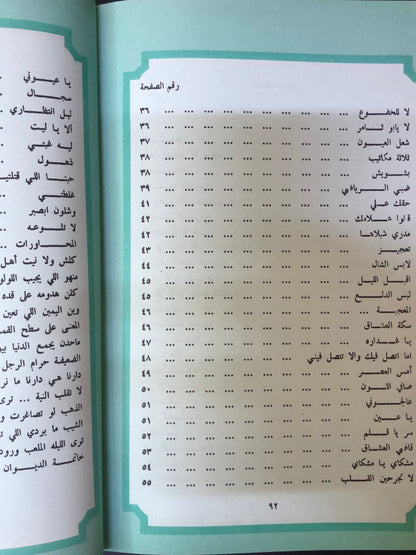 رقم الصفحة
لا للخضوع ... ... ... ... ... ... ... ... ٣٦
لا يابو ثامر ... ... ... ... ... ... ... ... ٣٦
شعل العيون ... ... ... ... ... ... ... ... ٣٧
ثلاثة مكاتيب ... ... ... ... ... ... ... ... ٣٨
بشويش ... ... ... ... ... ... ... ... ٣٨
ضبي الرياضي ... ... ... ... ... ... ... ... ٣٩
حقك علي ... ... ... ... ... ... ... ... ٤١
قالوا علامك ... ... ... ... ... ... ... ... ٤٢
مدري شبلاها ... ... ... ... ... ... ... ... ٤٢
تعجيز ... ... ... ... ... ... ... ... ٤٣
لابس الشال ... ... ... ... ... ... ... ... ٤٤
اقبل الليل ... ... ... ... ... ... ... ... ٤٥
لبس الدلع ... ... ... ... ... ... ... ... ٤٥
المعجبة ... ... ... ... ... ... ... ... ٤٦
سكة العشاق ... ... ... ... ... ... ... ... ٤٦
يا غداره ... ... ... ... ... ... ... ... ٤٧
اما اتصل فيك والا تتصل فيني ... ... ... ... ... ٤٨
أمس العصر ... ... ... ... ... ... ... ... ٤٩
صافي اللون ... ... ... ... ... ... ... ... ٥٠
عالجوني ... ... ... ... ... ... ... ... ٥١
يا عين ... ... ... ... ... ... ... ... ٥١
مر يا قلم ... ... ... ... ... ... ... ... ٥٢
قاضي العشاق ... ... ... ... ... ... ... ... ٥٣
مشكاي يا مشكاي ... ... ... ... ... ... ... ٥٤
لا تجرحين القلب ... ... ... ... ... ... ... ٥٥
٩٢
يا عيوني ...
سجال ...
ليل انتظاري ...
ألا يا ليت ...
ليه غبتي ...
ذهول ...
حبنا اللي قتلتيه
غلطتي ...
وشلون ابصبر ...
لا تلوعه ...
المحاورات ...
كلش ولا نيت أهل
منهو اللي يجيب اللولو
كلن هدومه على قده
وين اليمين اللي تعين
المعنى على سطح القمر
ماحدن يجمع الدنيا
الضعيفة حرام الرجل
دارنا هي دارنا ما
لا تقلب النية ... ترى
الذهب لو تصاغرت
الشيب ما يردي اللي
ترى الليله الملعب
خاتمة الديوان